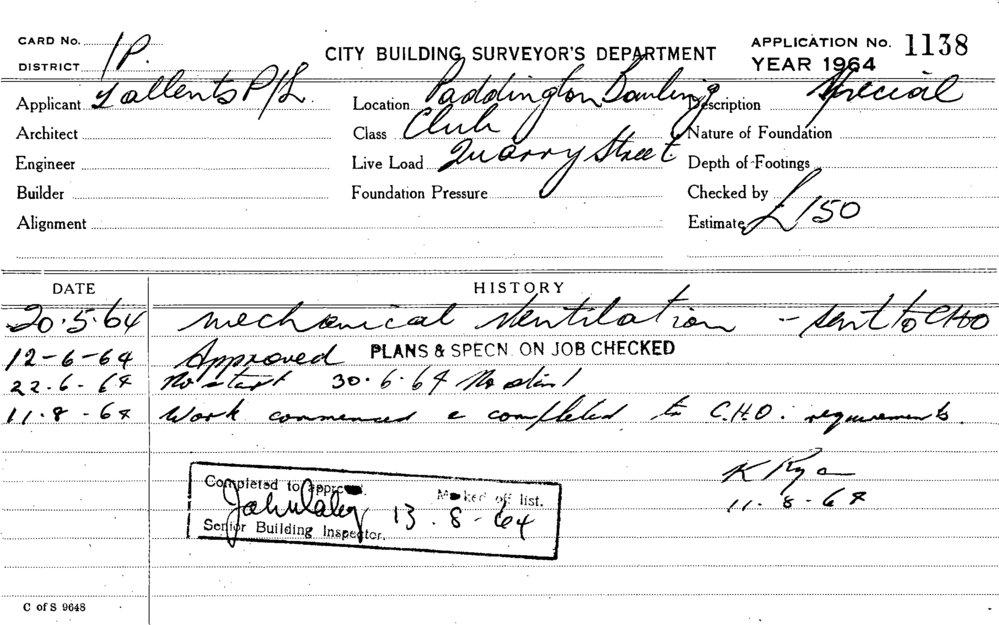 CARD No. 1P.
CITY BUILDING SURVEYOR'S DEPARTMENT
APPLICATION No. 1138
DISTRICT
YEAR 1964
Applicant Tallents P/L. Location Paddington Bowling Description Special
Architect Class Club Nature of Foundation
Engineer Live Load Quarry Street Depth of Footings
Builder Foundation Pressure Checked by
Alignment Estimate £150
DATE HISTORY
20.5.64 Mechanical Ventilation - sent to CHO
12-6-64 Approved PLANS & SPECN. ON JOB CHECKED
22.6-64 No start 30.6.64 No start
11.8-64 Work commenced & completed to C.H.O. requirements.
K Ryan
11.8-64
Completed to approval. Marked off list.
13.8-64
Senior Building Inspector.
C of S 9648